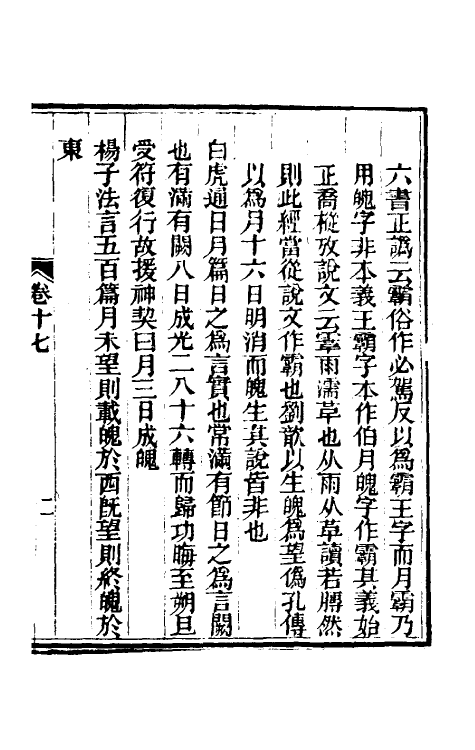 六書正譌云霸俗作必駕反以爲霸王字而月霸乃
用魄字非本義王霸字本作伯月魄字作霸其義始
正喬樅攷說文云䨣雨濡革也从雨从革讀若膊然
則此經當從說文作霸也劉歆以生魄爲望僞孔傳
以爲月十六日明消而魄生其說皆非也
白虎通日月篇日之爲言實也常滿有節日之爲言闕
也有滿有闕八日成光二八十六轉而歸功晦至朔旦
受符復行故援神契曰月三日成魄
楊子法言五百篇月未望則載魄於西旣望則終魄於
東
卷十七
二